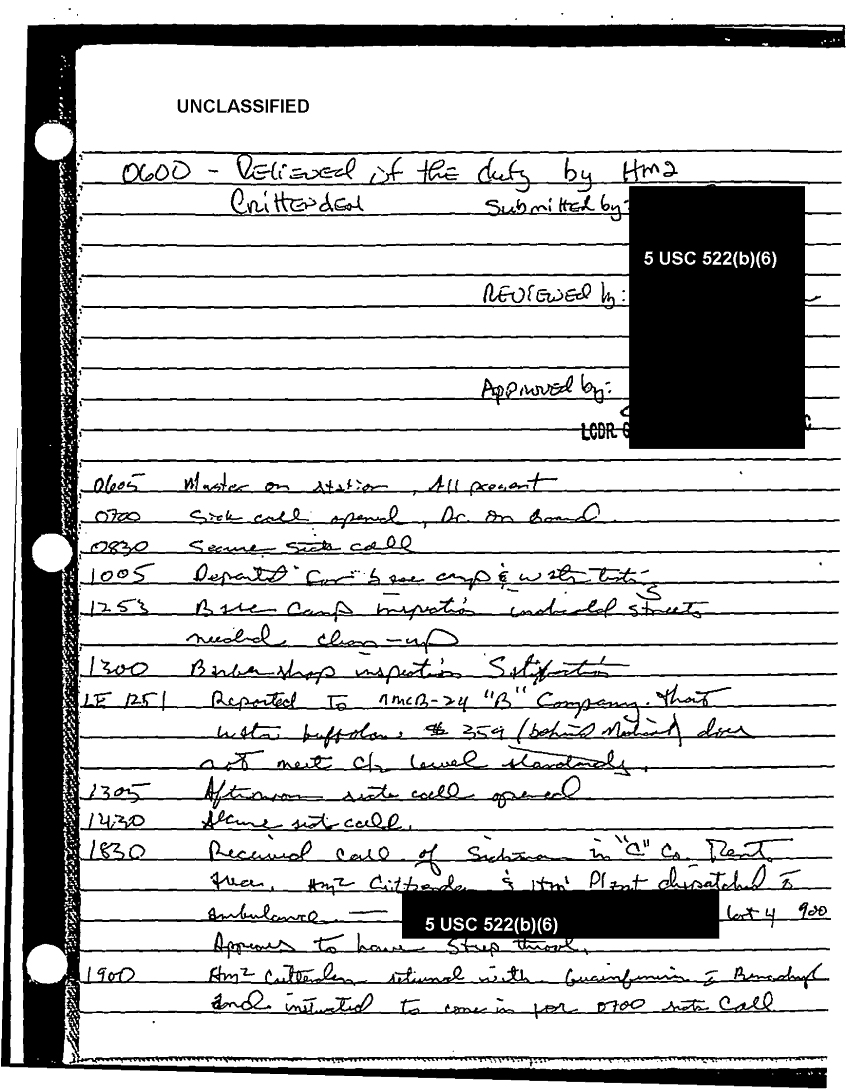 UNCLASSIFIED
0600 - Relieved of the duty by HM2
Crittenden Submitted by:
5 USC 522(b)(6)
Reviewed by:
Approved by:
LCDR G
0605 Muster on station, All present
0700 Sick call opened, Dr. on Board.
0830 Secure sick call
1005 Departed for base camp & water testing
1253 Base Camp inspection indicated streets
needed clean-up
1300 Barbershop inspection Satisfactory
LE 1251 Reported to NMCB-24 "B" Company. that
water buffalo # 354 (behind ) does
not meet Cl2 level standards.
1305 Afternoon sick call opened
1430 Secure sick call.
1830 Received call of Sickman in "C" Co. Tent
Area, HM2 Crittenden & HM1 Plant dispatched c̄
ambulance — 5 USC 522(b)(6) last 4 900
Appears to have Strep throat.
1900 HM2 Crittenden returned with Guaifenesin & Benadryl
and instructed to come in for 0700 sick call